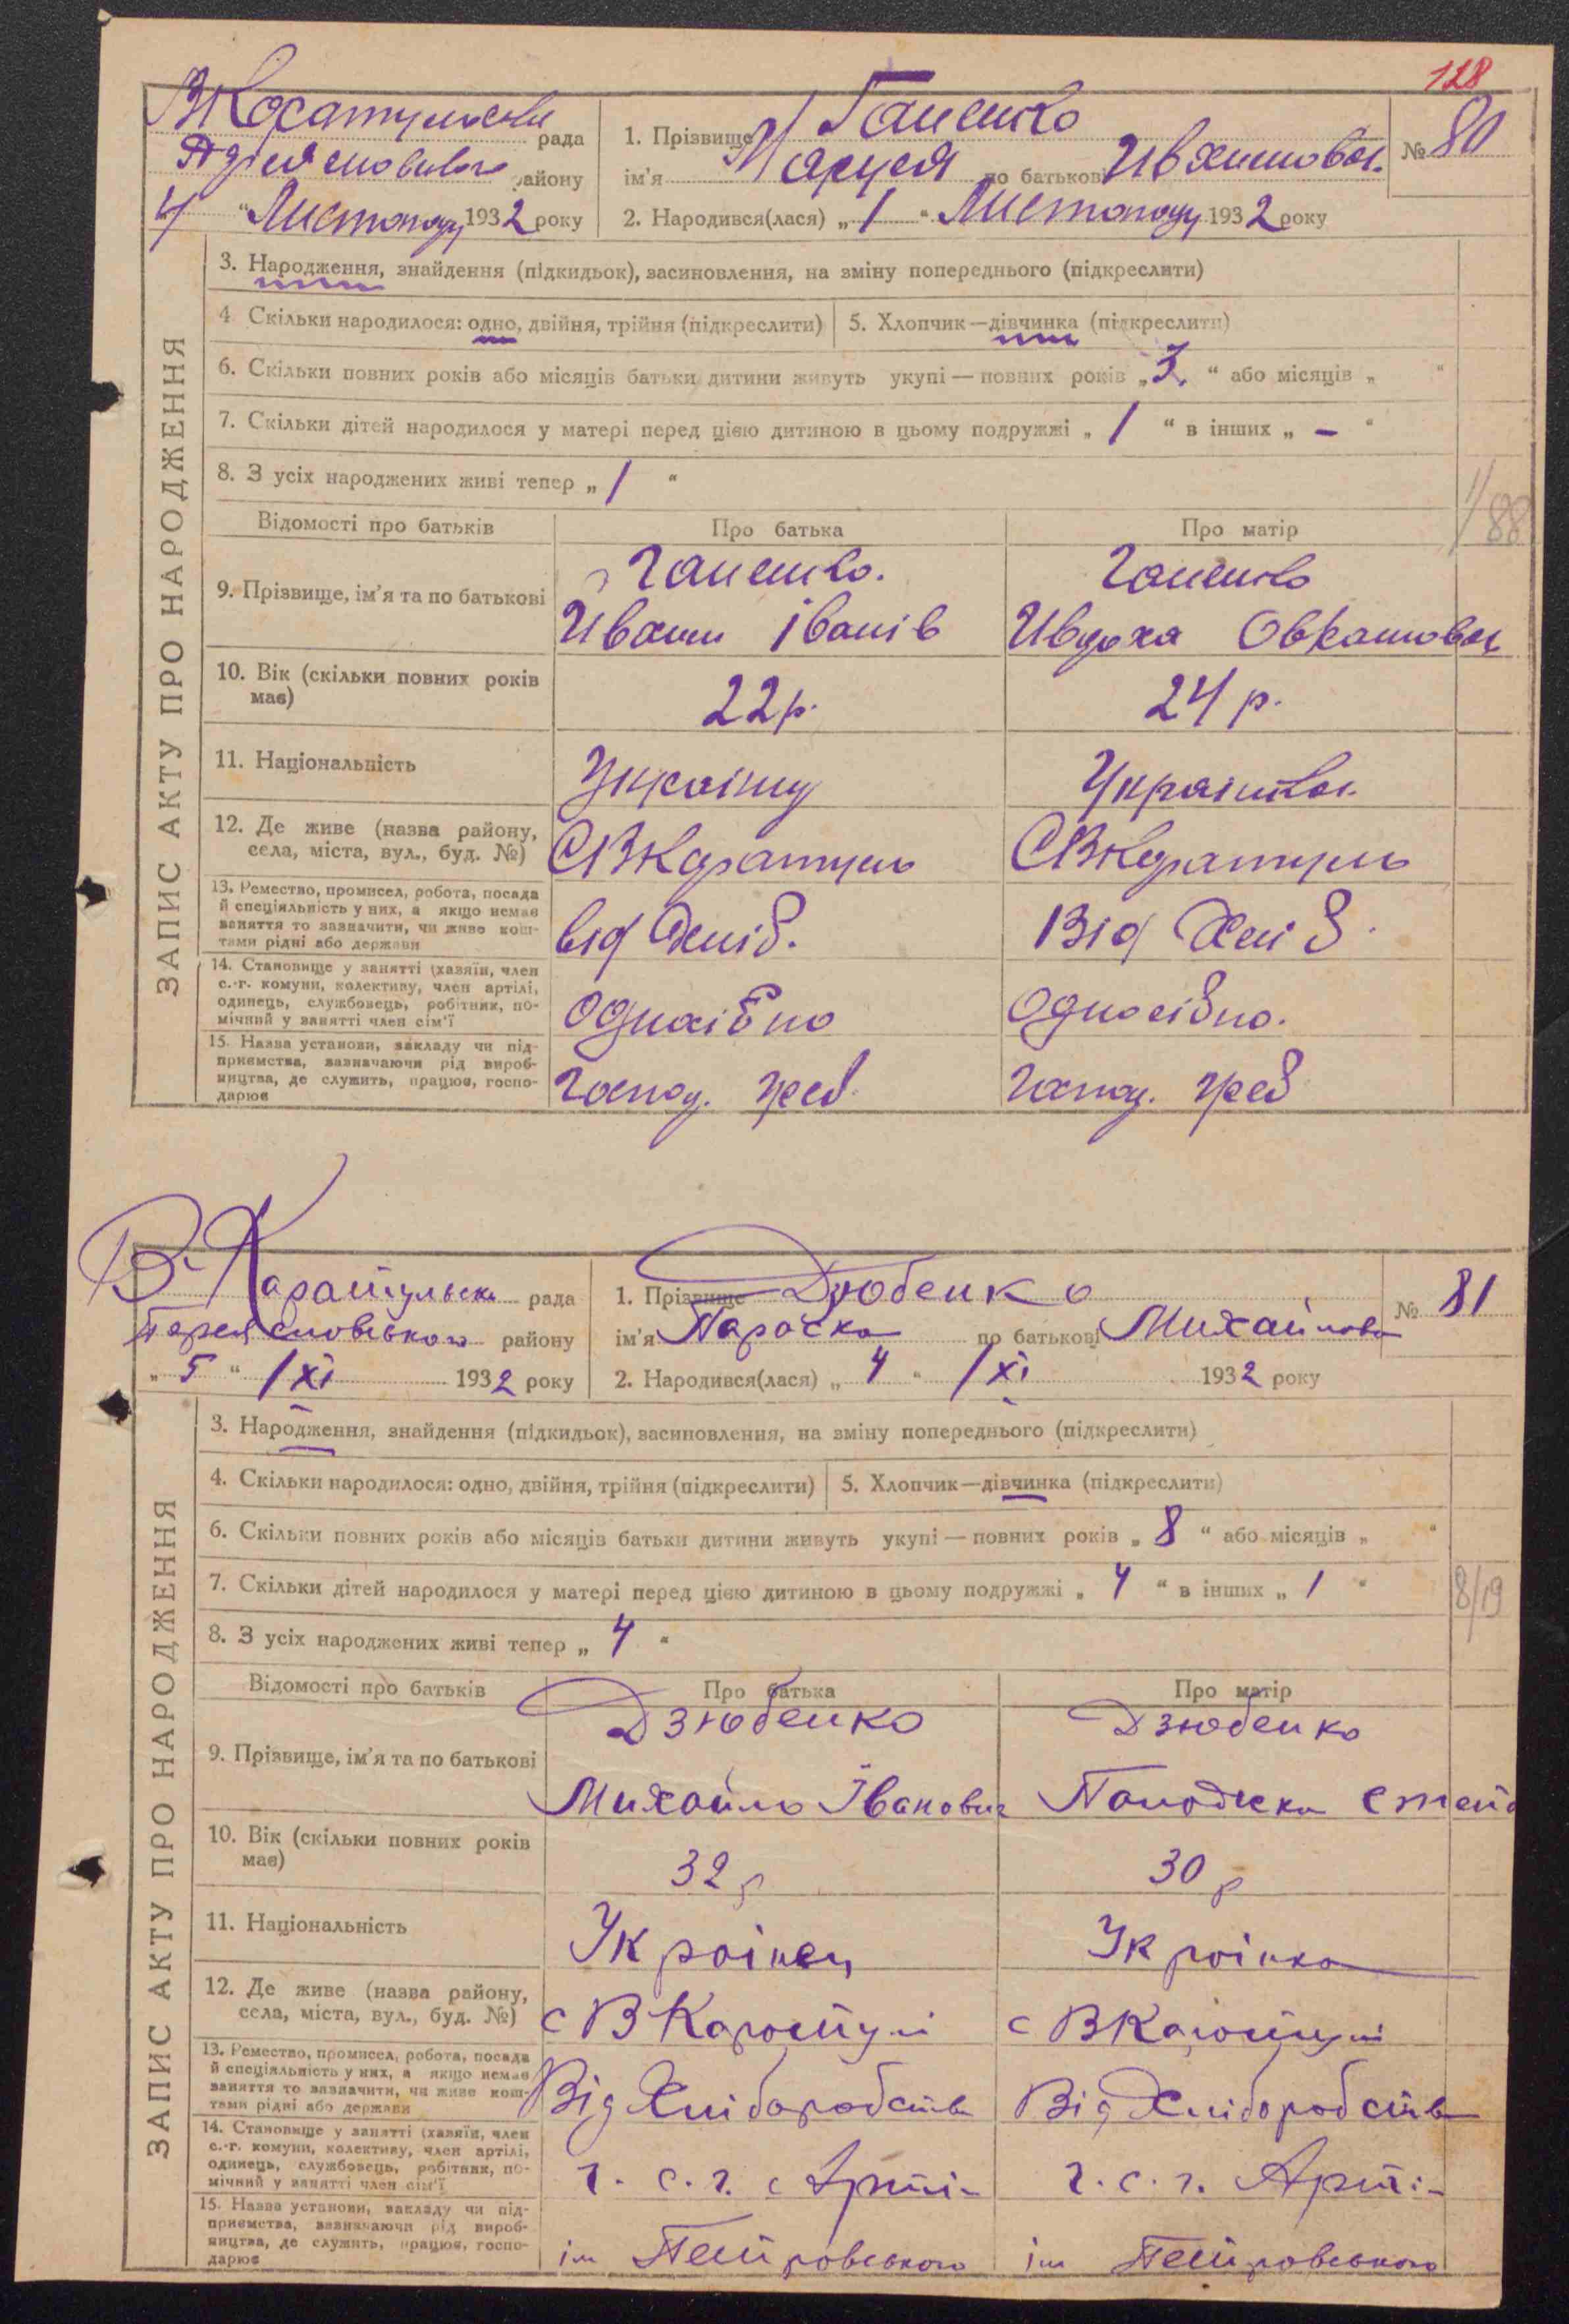 128
ЗАПИС АКТУ ПРО НАРОДЖЕННЯ
рада
району
4 " Листопаду 1932 року
1. Прізвище Ганенко
ім'я Маруся по батькові
№ 80
2. Народився(лася) „ 1 " Листопаду 1932 року
3. Народження, знайдення (підкидьок), засиновлення, на зміну попереднього (підкреслити)
4 Скільки народилося: одно, двійня, трійня (підкреслити) 5. Хлопчик—дівчинка (підкреслити)
6. Скільки повних років або місяців батьки дитини живуть укупі — повних років „ 3 " або місяців „ "
7. Скільки дітей народилося у матері перед цією дитиною в цьому подружжі „ 1 " в інших „ – "
8. З усіх народжених живі тепер „ 1 "
1/88
Відомості про батьків Про батька Про матір
9. Прізвище, ім'я та по батькові
Ганенко. Ганенко
Іванів
10. Вік (скільки повних років має)
22 р. 24 р.
11. Національність
Українка
12. Де живе (назва району, села, міста, вул., буд. №)
С В Каратуль С В Каратуль
13. Ремество, промисел, робота, посада й спеціяльність у них, а якщо немає заняття то зазначити, чи живе коштами рідні або держави
від хліб. Від Хліб
14. Становище у занятті (хазяїн, член с.-г. комуни, колективу, член артілі, одинець, службовець, робітник, помічний у занятті член сім'ї
Односібно Односібно.
15. Назва установи, закладу чи підприємства, зазначаючи рід виробництва, де служить, працює, господарює
Господ. Господ.
ЗАПИС АКТУ ПРО НАРОДЖЕННЯ
В-Каратульська рада
Переясловського району
„ 5 " /XI 1932 року
1. Прізвище Дзюбенко
ім'я Параска по батькові Михайлова
№ 81
2. Народився(лася) „ 4 " /XI 1932 року
3. Народження, знайдення (підкидьок), засиновлення, на зміну попереднього (підкреслити)
4. Скільки народилося: одно, двійня, трійня (підкреслити) 5. Хлопчик—дівчинка (підкреслити)
6. Скільки повних років або місяців батьки дитини живуть укупі — повних років „ 8 " або місяців „ "
7. Скільки дітей народилося у матері перед цією дитиною в цьому подружжі „ 4 " в інших „ 1 "
8/19
8. З усіх народжених живі тепер „ 4 "
Відомості про батьків Про батька Про матір
9. Прізвище, ім'я та по батькові
Дзюбенко Дзюбенко
Михайло Іванович
10. Вік (скільки повних років має)
32 р 30 р
11. Національність
Українец Українка
12. Де живе (назва району, села, міста, вул., буд. №)
с В Каратулі с В Каратулі
13. Ремество, промисел, робота, посада й спеціяльність у них, а якщо немає заняття то зазначити, чи живе коштами рідні або держави
Від Хліборобств Від Хліборобств
14. Становище у занятті (хазяїн, член с.-г. комуни, колективу, член артілі, одинець, службовець, робітник, помічний у занятті член сім'ї
ч. с. г. Арті- ч. с. г. Арті-
15. Назва установи, закладу чи підприємства, зазначаючи рід виробництва, де служить, працює, господарює
ім Петровського ім Петровського